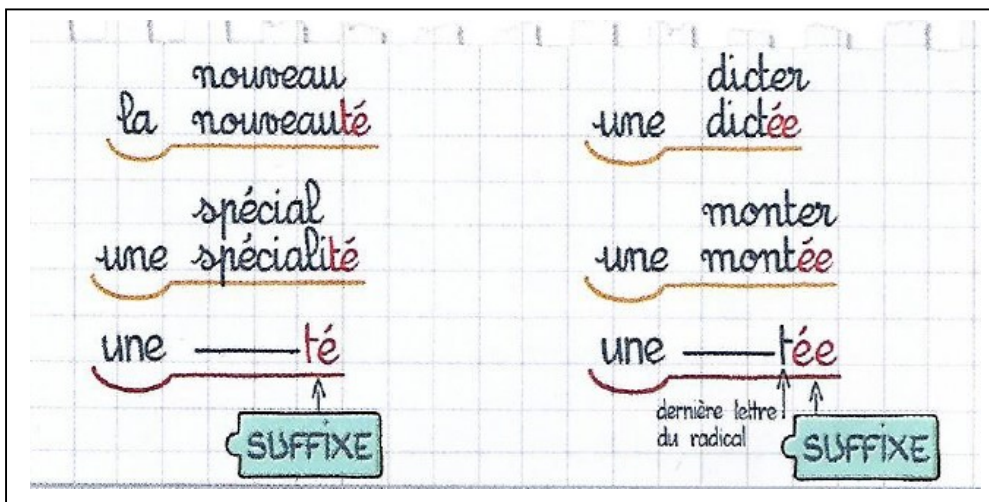 nouveau
la nouveauté
spécial
une spécialité
une ———té
SUFFIXE
dicter
une dictée
monter
une montée
une ———tée
dernière lettre
du radical
SUFFIXE